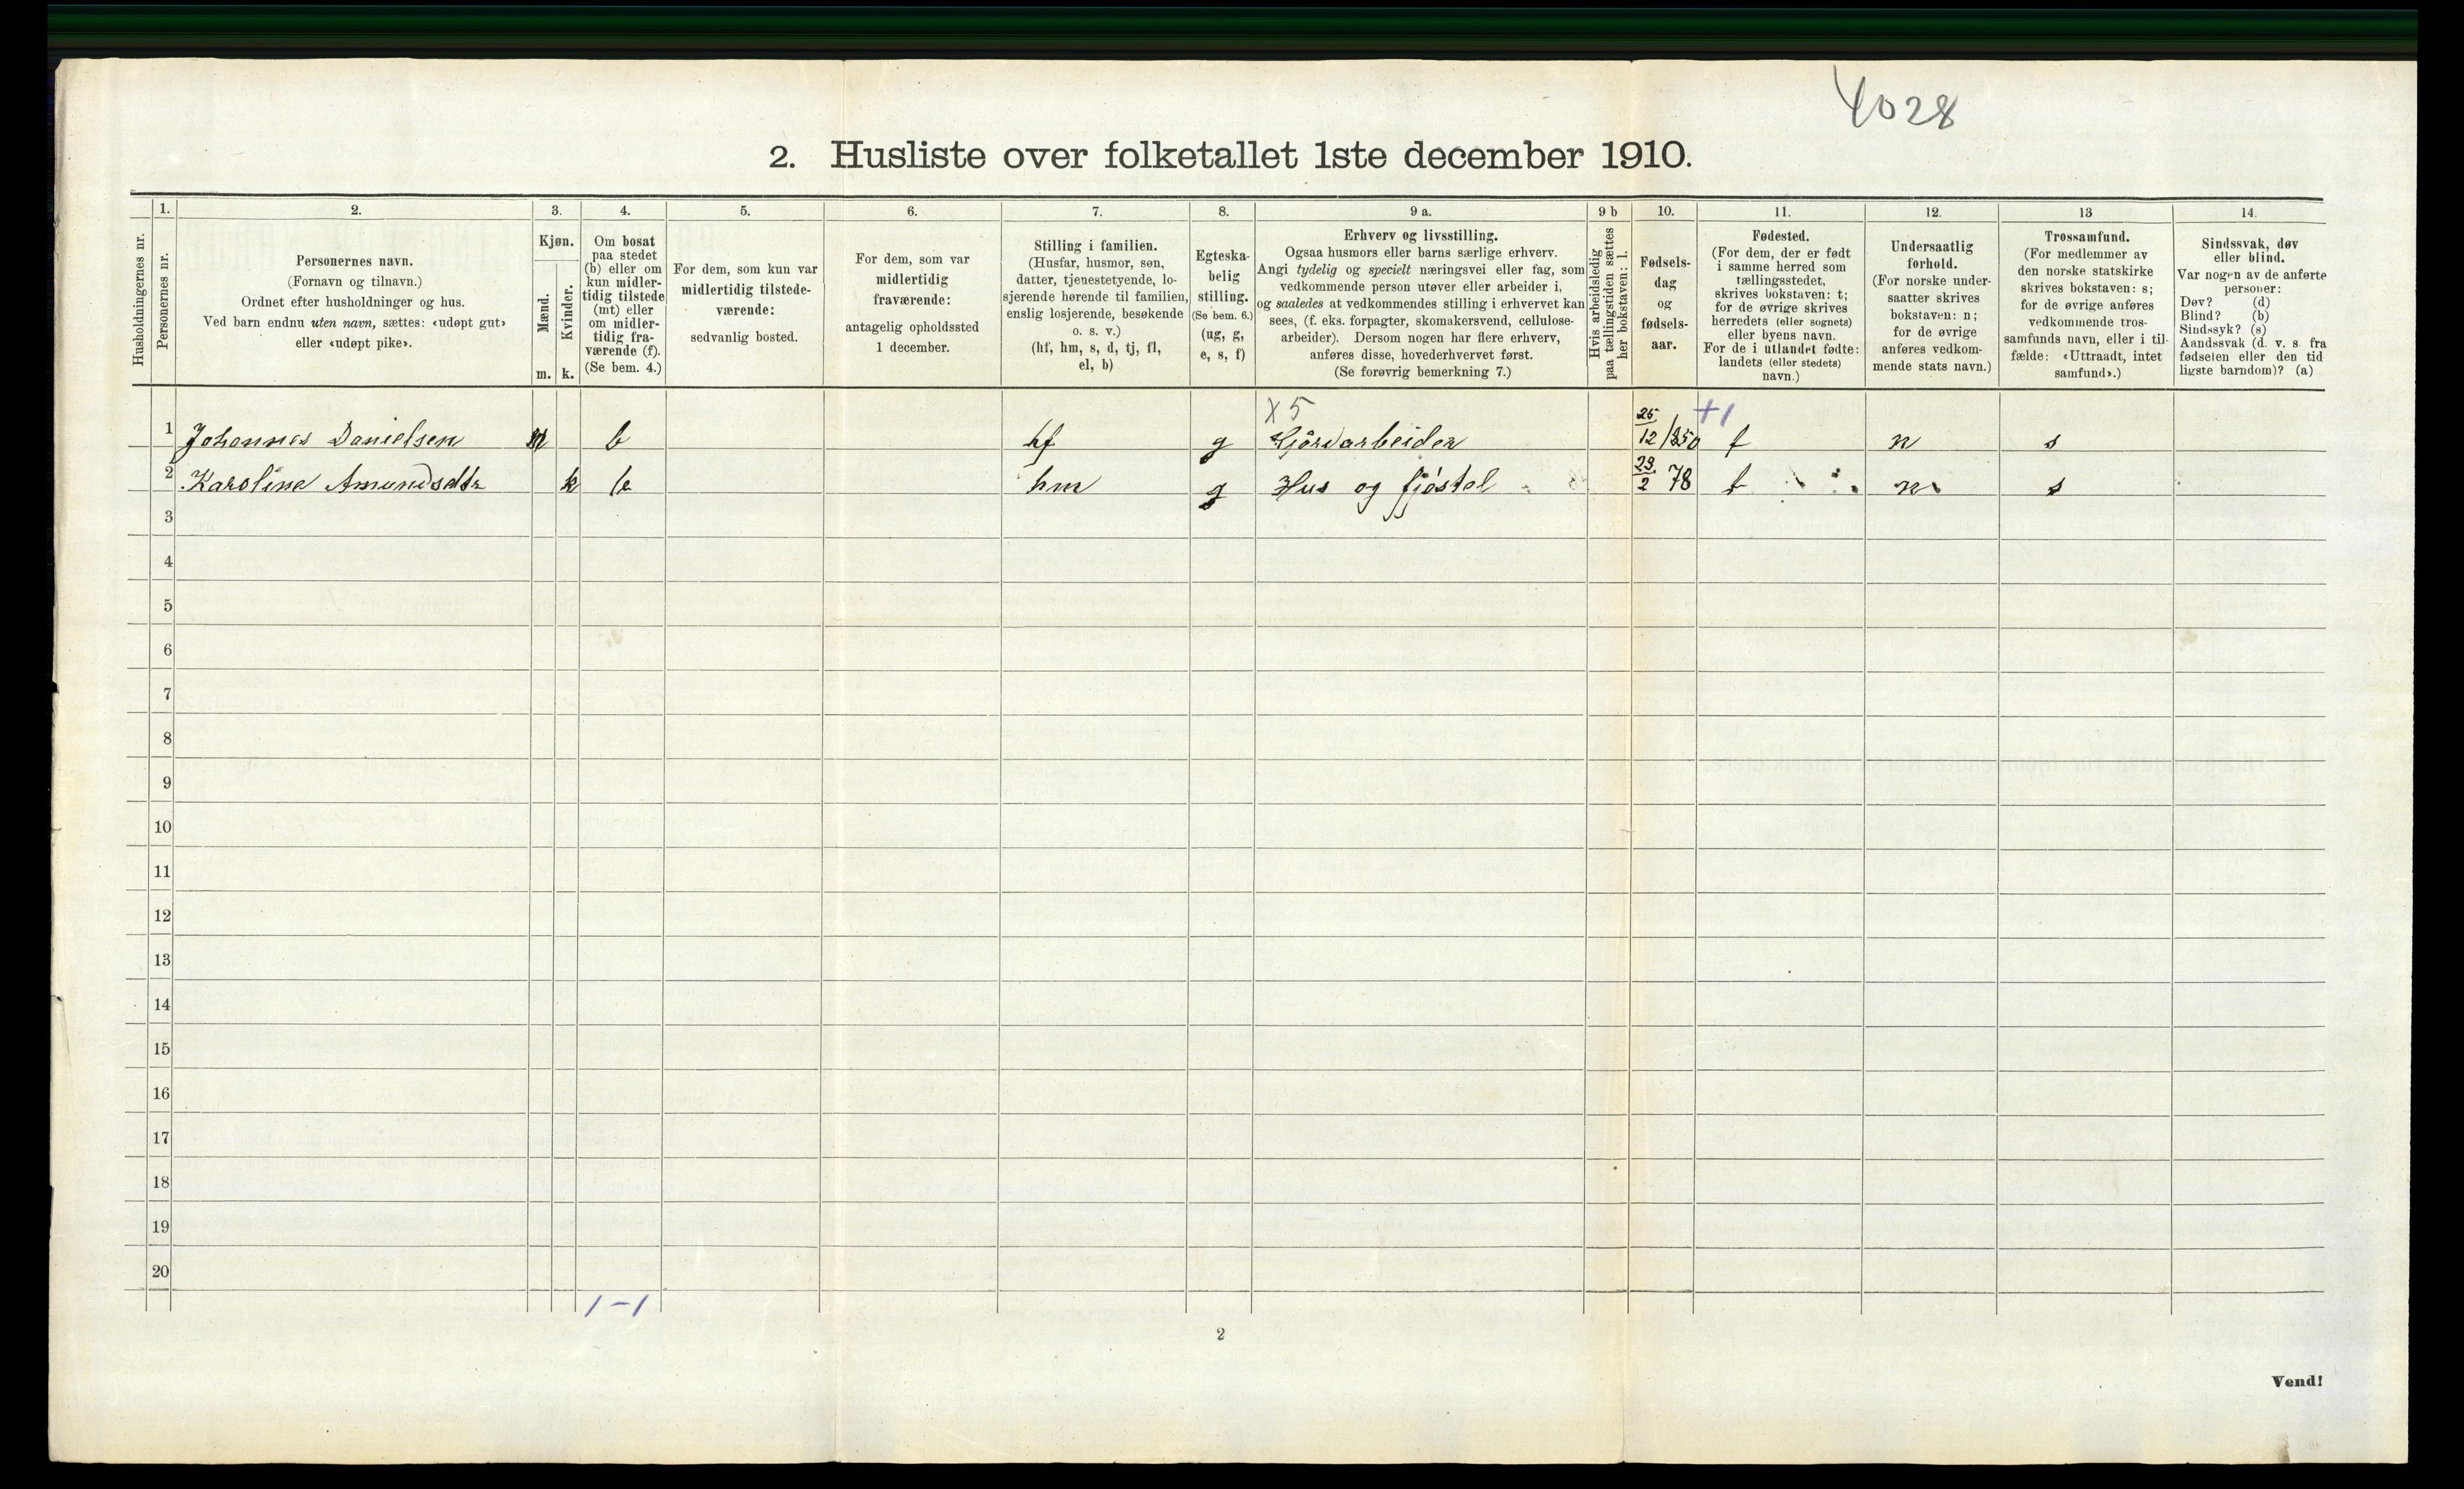 4028
2. Husliste over folketallet 1ste december 1910.
1. 2. 3. 4. 5. 6. 7. 8. 9 a. 9 b 10. 11. 12. 13 14.
Husholdningernes nr.
Personernes nr.
Personernes navn.
(Fornavn og tilnavn.)
Ordnet efter husholdninger og hus.
Ved barn endnu uten navn, sættes: «udøpt gut»
eller «udøpt pike».
Kjøn.
Mænd.
Kvinder.
m. k.
Om bosat
paa stedet
(b) eller om
kun midler-
tidig tilstede
(mt) eller
om midler-
tidig fra-
værende (f).
(Se bem. 4.)
For dem, som kun var
midlertidig tilstede-
værende:
sedvanlig bosted.
For dem, som var
midlertidig
fraværende:
antagelig opholdssted
1 december.
Stilling i familien.
(Husfar, husmor, søn,
datter, tjenestetyende, lo-
sjerende hørende til familien,
enslig losjerende, besøkende
o. s. v.)
(hf, hm, s, d, tj, fl,
el, b)
Egteska-
belig
stilling.
(Se bem. 6.)
(ug, g,
e, s, f)
Erhverv og livsstilling.
Ogsaa husmors eller barns særlige erhverv.
Angi tydelig og specielt næringsvei eller fag, som
vedkommende person utøver eller arbeider i,
og saaledes at vedkommendes stilling i erhvervet kan
sees, (f. eks. forpagter, skomakersvend, cellulose-
arbeider). Dersom nogen har flere erhverv,
anføres disse, hovederhvervet først.
(Se forøvrig bemerkning 7.)
Hvis arbeidsledig
paa tællingstiden sættes
her bokstaven: l.
Fødsels-
dag
og
fødsels-
aar.
Fødested.
(For dem, der er født
i samme herred som
tællingsstedet,
skrives bokstaven: t;
for de øvrige skrives
herredets (eller sognets)
eller byens navn.
For de i utlandet fødte:
landets (eller stedets)
navn.)
Undersaatlig
forhold.
(For norske under-
saatter skrives
bokstaven: n;
for de øvrige
anføres vedkom-
mende stats navn.)
Trossamfund.
(For medlemmer av
den norske statskirke
skrives bokstaven: s;
for de øvrige anføres
vedkommende tros-
samfunds navn, eller i til-
fælde: «Uttraadt, intet
samfund».)
Sindssvak, døv
eller blind.
Var nogen av de anførte
personer:
Døv? (d)
Blind? (b)
Sindssyk? (s)
Aandssvak (d. v. s. fra
fødselen eller den tid
ligste barndom)? (a)
X 5 +1
1 Johannes Danielsen m b hf g 25/12 1850 t n s
2 Karoline Amundsdtr k b hm g Hus og fjøstel 29/2 78 t n s
3
4
5
6
7
8
9
10
11
12
13
14
15
16
17
18
19
20
1-1
2
Vend!